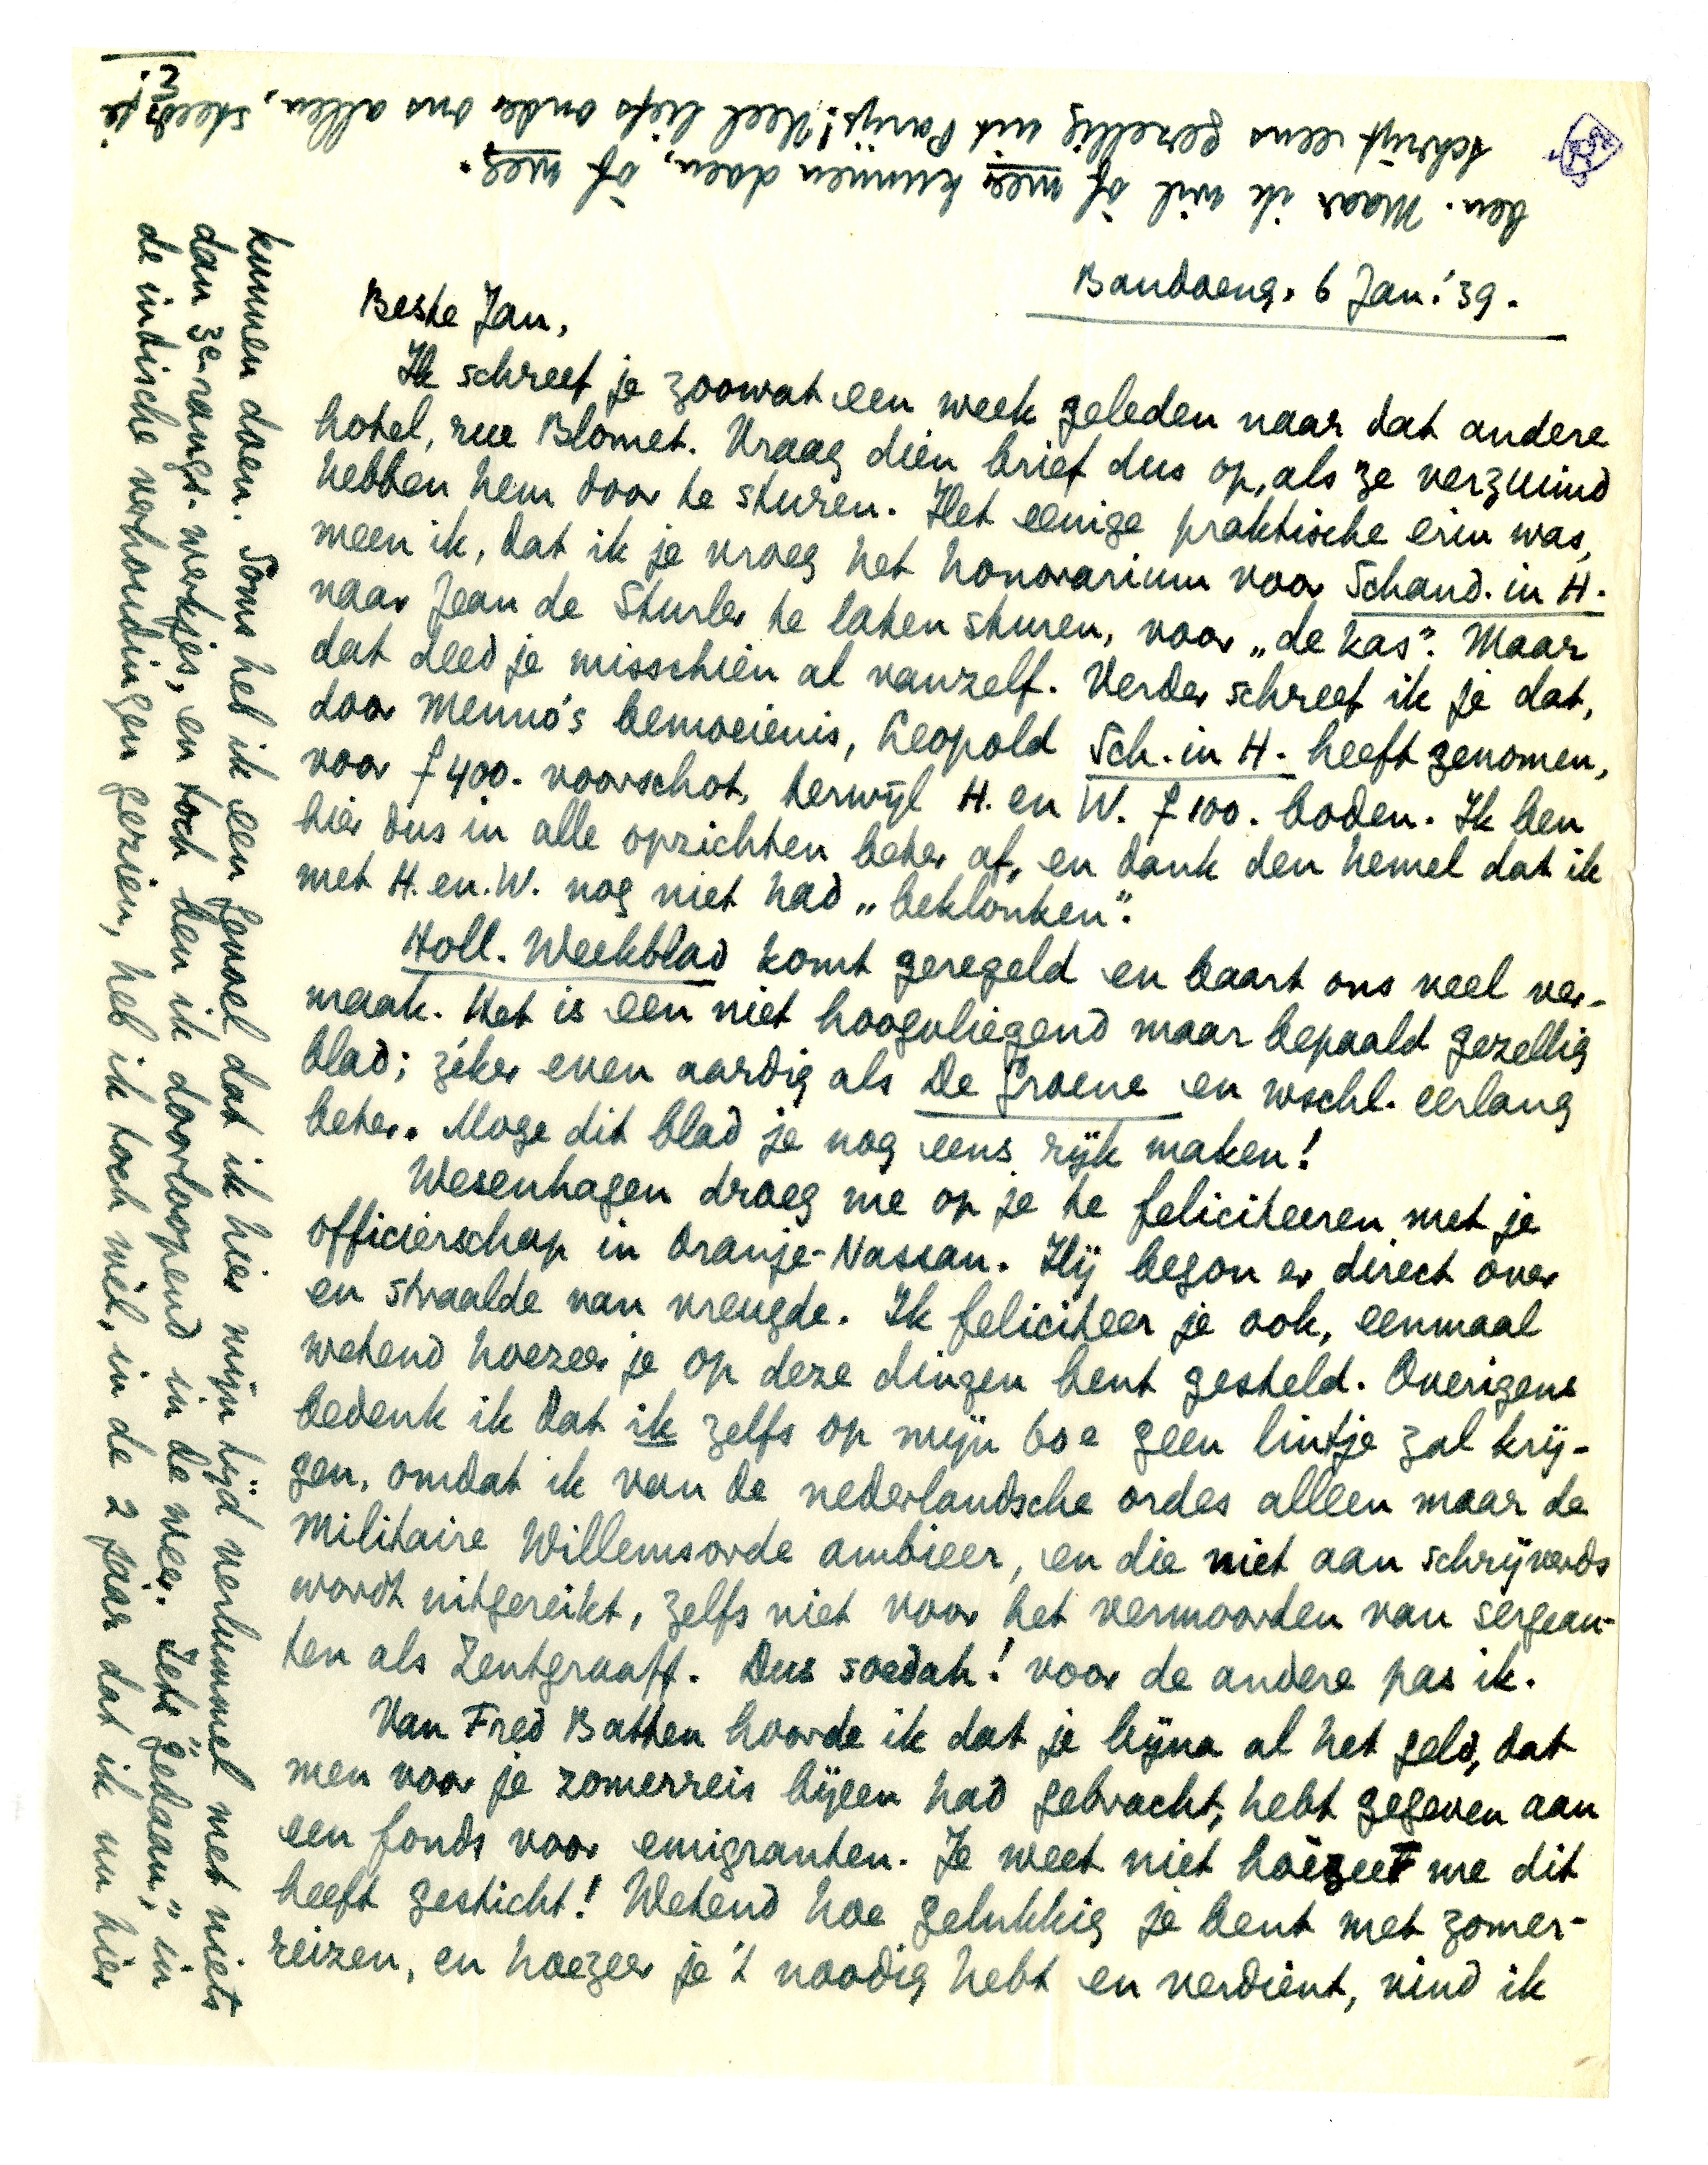 Bandoeng, 6 Jan. '39.
Beste Jan,
Ik schreef je zoowat een week geleden naar dat andere
hotel, rue Blomet. Vraag dien brief dus op, als ze verzuimd
hebben hem door te sturen. Het eenige praktische erin was,
meen ik, dat ik je vroeg het honorarium voor Schand. in H.
naar Jean de Sturler te laten sturen, voor „de kas”. Maar
dat deed je misschien al vanzelf. Verder schreef ik je dat,
door Menno's bemoeienis, Leopold Sch. in H. heeft genomen,
voor f 400.- voorschot, terwijl H. en W. f 100.- boden. Ik ben
hier dus in alle opzichten beter af, en dank den hemel dat ik
met H. en W. nog niet had „beklonken”.
Holl. Weekblad komt geregeld en baart ons veel ver-
maak. Het is een niet hoogvliegend maar bepaald gezellig
blad; zéker even aardig als De Groene en wschl. eerlang
beter. Moge dit blad je nog eens rijk maken!
Wesenhagen droeg me op je te feliciteeren met je
officierschap in Oranje-Nassau. Hij begon er direct over
en straalde van vreugde. Ik feliciteer je ook, eenmaal
wetend hoezeer je op deze dingen bent gesteld. Overigens
bedenk ik dat ik zelfs op mijn 60e geen lintje zal krij-
gen, omdat ik van de nederlandsche ordes alleen maar de
Militaire Willemsorde ambieer, en die niet aan schrijverds
wordt uitgereikt, zelfs niet voor het vermoorden van sergean-
ten als Zentgraaff. Dus soedah! voor de andere pas ik.
Van Fred Batten hoorde ik dat je bijna al het geld, dat
men voor je zomerreis bijeen had gebracht, hebt gegeven aan
een fonds voor emigranten. Je weet niet hoezeer me dit
heeft gesticht! Wetend hoe gelukkig je bent met zomer-
reizen, en hoezeer je 't noodig hebt en verdient, vind ik
kunnen doen. Soms heb ik een gevoel dat ik hier mijn tijd verlummel met niets
dan 3e-rangs-werkjes, en toch ben ik doorloopend in de weer. Iets „gedaan”, in
de indische verhoudingen gezien, heb ik toch wèl, in de 2 jaar dat ik nu hier
ben. Maar ik wil òf meer kunnen doen, òf weg.
Schrijf eens gezellig uit Parijs! Veel liefs onder ons allen, steeds je